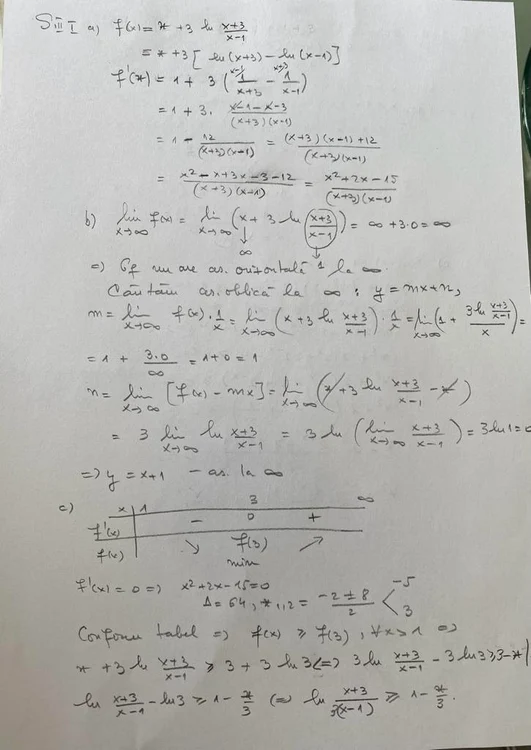 S III I a) f(x) = x + 3 ln (x+3)/(x-1)
= x + 3 [ ln(x+3) - ln(x-1) ]
f'(x) = 1 + 3 ( x-1) 1/(x+3) - x+3) 1/(x-1) )
= 1 + 3 · (x-1-x-3)/((x+3)(x-1))
= 1 - 12/((x+3)(x-1)) = ((x+3)(x-1)+12)/((x+3)(x-1))
= (x²-x+3x-3-12)/((x+3)(x+1)) = (x²+2x-15)/((x+3)(x-1))
b) lim x→∞ f(x) = lim x→∞ (x + 3 ln (x+3)/(x-1)) = ∞ + 3·0 = ∞
↓ ∞ ↓ 1
=> Gf nu are as. orizontală la ∞
Căutăm as. oblică la ∞ : y = mx+n,
m = lim x→∞ f(x) · 1/x = lim x→∞ (x + 3 ln (x+3)/(x-1)) · 1/x = lim x→∞ (1 + (3 ln (x+3)/(x-1))/x) =
= 1 + 3·0/∞ = 1+0 = 1
n = lim x→∞ [f(x) - mx] = lim x→∞ (x + 3 ln (x+3)/(x-1) - x)
= 3 lim x→∞ ln (x+3)/(x-1) = 3 ln ( lim x→∞ (x+3)/(x-1) ) = 3 ln 1 = 0
=> y = x+1 - as. la ∞
c) x | 1 3 ∞
f'(x) | - 0 +
f(x) | ↘ f(3) ↗
min
f'(x) = 0 => x²+2x-15=0
Δ = 64, x1,2 = (-2±8)/2 < -5 3
Conform tabel => f(x) ≥ f(3), ∀x>1 =>
x + 3 ln (x+3)/(x-1) ≥ 3 + 3 ln 3 <=> 3 ln (x+3)/(x-1) - 3 ln 3 ≥ 3-x |
ln (x+3)/(x-1) - ln 3 ≥ 1 - x/3 <=> ln (x+3)/(3(x-1)) ≥ 1 - x/3.